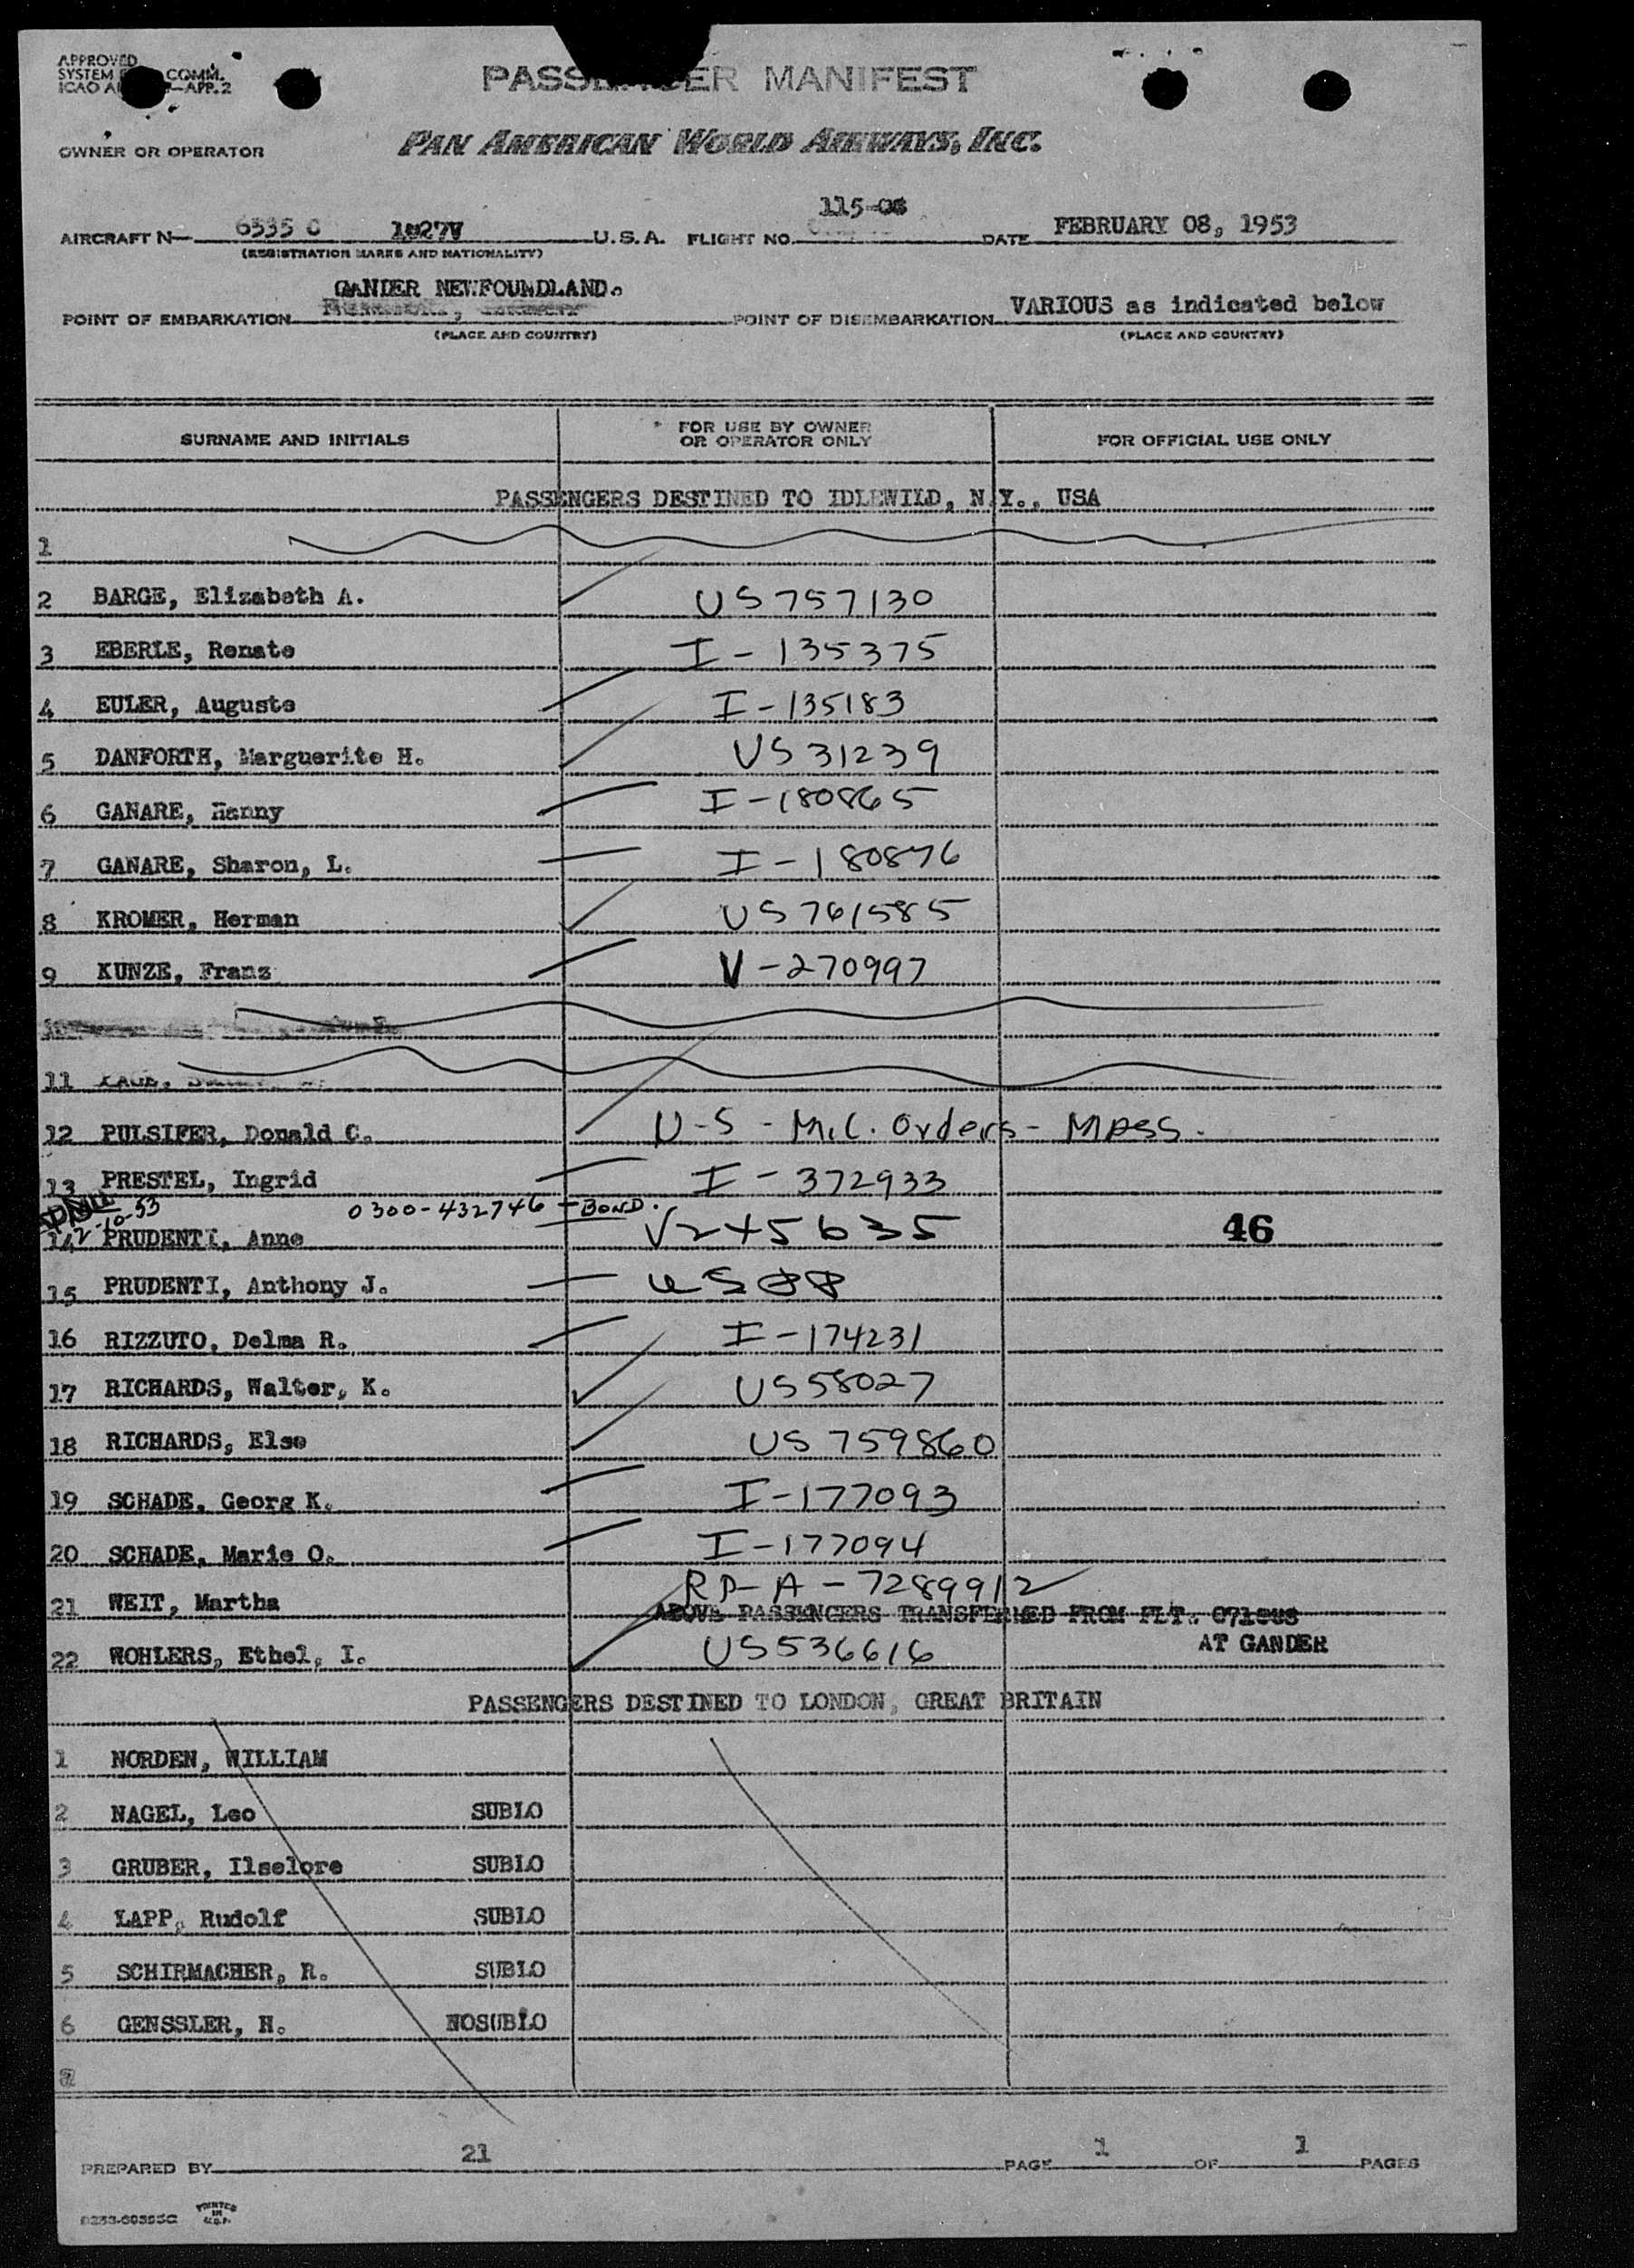 APPROVED
SYSTEM COMM.
ICAO —APP. 2
PASSENGER MANIFEST
OWNER OR OPERATOR PAN AMERICAN WORLD AIRWAYS, INC.
115-08
AIRCRAFT N— 6535 C 1027V U.S.A. FLIGHT NO. DATE FEBRUARY 08, 1953
(REGISTRATION MARKS AND NATIONALITY)
GANDER NEWFOUNDLAND.
POINT OF EMBARKATION POINT OF DISEMBARKATION VARIOUS as indicated below
(PLACE AND COUNTRY) (PLACE AND COUNTRY)
SURNAME AND INITIALS FOR USE BY OWNER OR OPERATOR ONLY FOR OFFICIAL USE ONLY
PASSENGERS DESTINED TO IDLEWILD, N.Y., USA
1
2 BARGE, Elizabeth A. US 757130
3 EBERLE, Renate I-135375
4 EULER, Auguste I-135183
5 DANFORTH, Marguerite H. US 31239
6 GANARE, Hanny I-180865
7 GANARE, Sharon, L. I-180876
8 KROMER, Herman US 761585
9 KUNZE, Franz V-270997
11
12 PULSIFER, Donald C. U-S - Mil. Orders - Mpss.
13 PRESTEL, Ingrid I-372933
2-10-53 0300-432746 - BOND.
14 PRUDENTI, Anne V245635 46
15 PRUDENTI, Anthony J. US PP
16 RIZZUTO, Delma R. I-174231
17 RICHARDS, Walter, K. US 58027
18 RICHARDS, Else US 759860
19 SCHADE, Georg K. I-177093
20 SCHADE, Marie O. I-177094
21 WEIT, Martha RP-A-7289912
ABOVE PASSENGERS TRANSFERRED FROM FLT.
AT GANDER
22 WOHLERS, Ethel, I. US 536616
PASSENGERS DESTINED TO LONDON, GREAT BRITAIN
1 NORDEN, WILLIAM
2 NAGEL, Leo SUBLO
3 GRUBER, Ilselore SUBLO
4 LAPP, Rudolf SUBLO
5 SCHIRMACHER, R. SUBLO
6 GENSSLER, H. NOSUBLO
PREPARED BY 21 PAGE 1 OF 1 PAGES
PRINTED IN U.S.A.